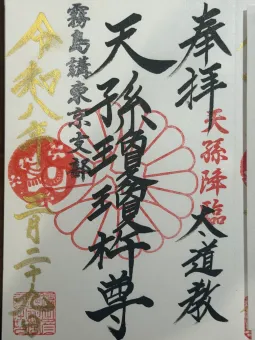 奉拝
天孫降臨
太道教
天孫瓊瓊杵尊
霧島講東京支部
令和八年二月二十九日